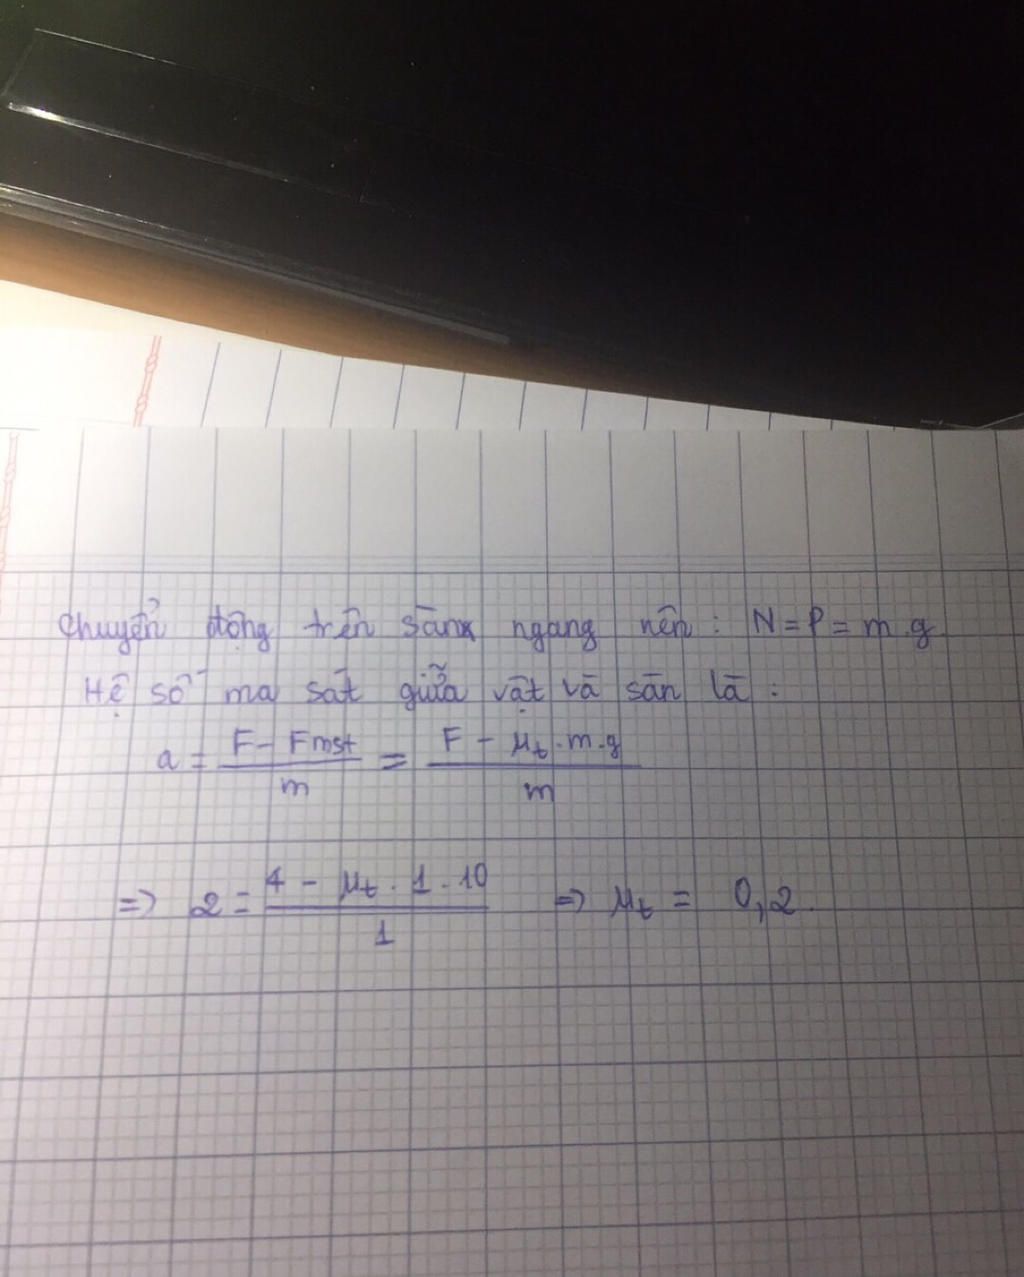 Chuyển động trên sàn ngang nên : N = P = m.g
Hệ số ma sát giữa vật và sàn là :
a = (F - Fmst)/m = (F - μt.m.g)/m
=> 2 = (4 - μt.1.10)/1 => μt = 0,2.